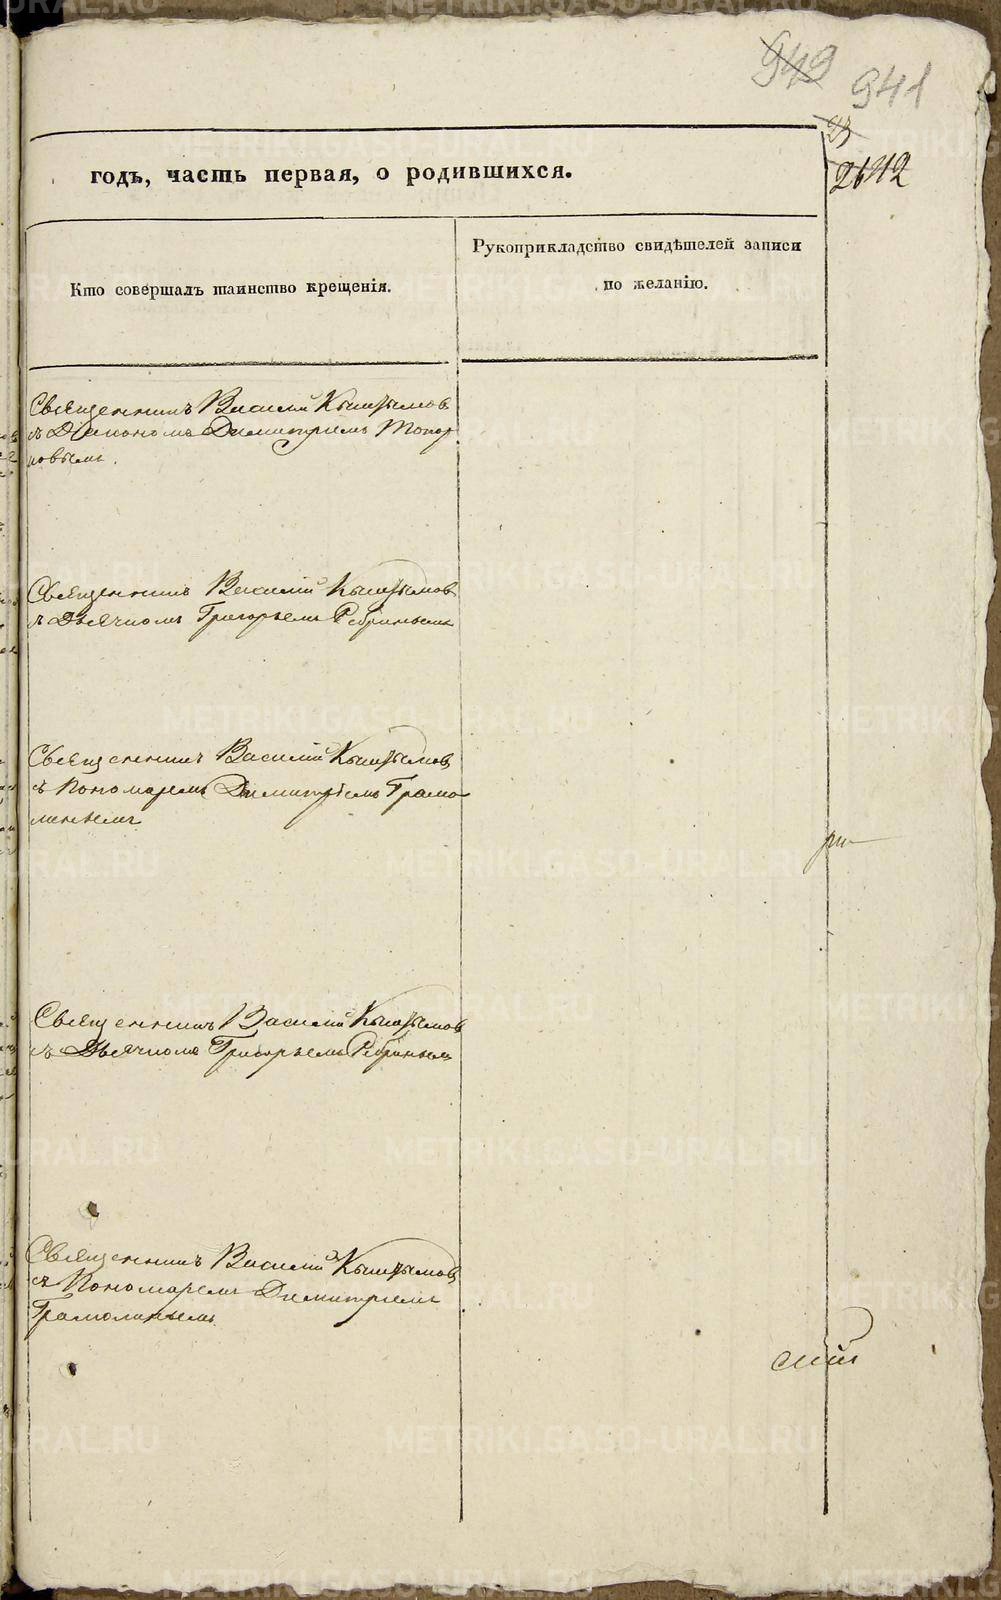 949 941
23
2642
годъ, часть первая, о родившихся.
Кто совершалъ таинство крещенія.
Рукоприкладство свидѣтелей записи
по желанію.
Священникъ Василій Кыштымов
съ Діакономъ Димитріемъ Топор
ковымъ.
Священникъ Василій Кыштымов
съ Дьячкомъ Григорьемъ Ребринымъ
Священникъ Василій Кыштымов
съ Пономаремъ Димитріемъ Грамо
линымъ
Священникъ Василій Кыштымов
съ Дьячкомъ Григорьемъ Ребринымъ
Священникъ Василій Кыштымовъ
съ Пономаремъ Димитріемъ
Грамолинымъ.
скій
METRIKI.GASO-URAL.RU